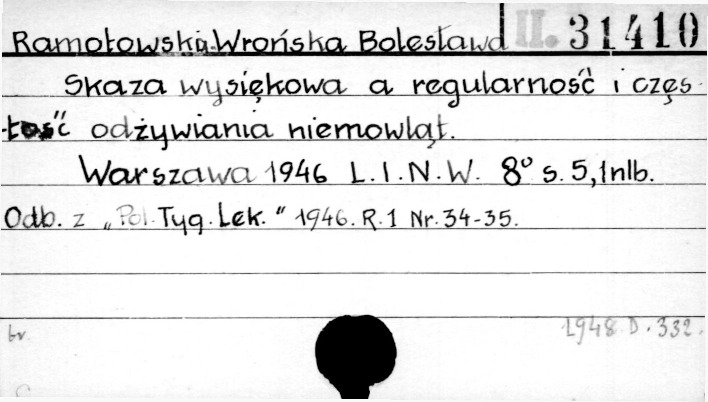 Ramotowska-Wrońska Bolesława II. 31410
Skaza wysiękowa a regularność i częs-
tość odżywiania niemowląt.
Warszawa 1946 L.I.N.W. 8° s. 5, 1 nlb.
Odb. z „Pol. Tyg. Lek." 1946. R. 1 Nr. 34-35.
br. 1948. D. 332.